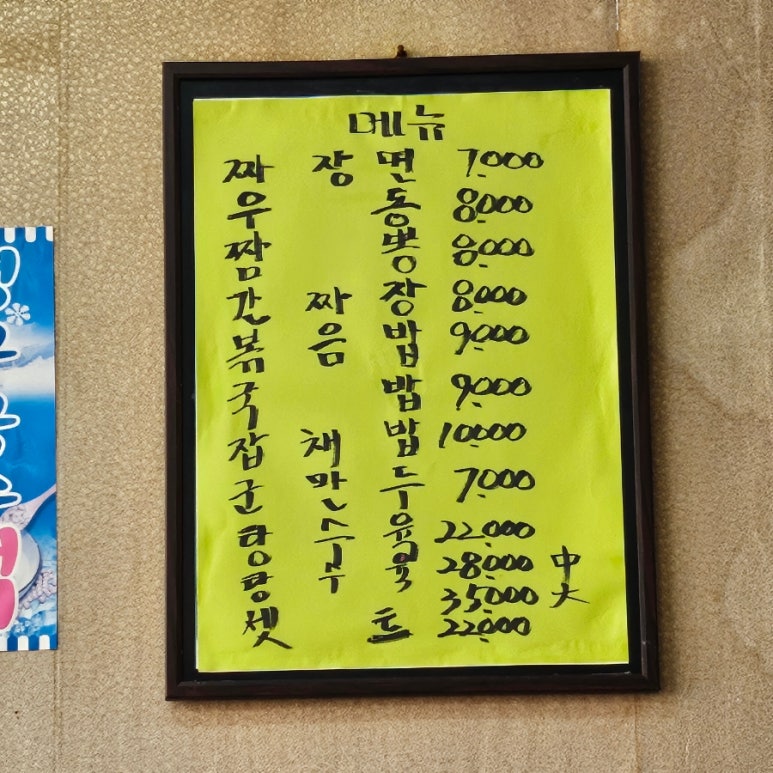 메뉴
짜장면 7.000
우동 8.000
짬뽕 8.000
간짜장 8.000
볶음밥 9.000
국밥 9.000
잡채밥 10.000
군만두 7.000
탕수육 22.000
탕수육 28.000 中
35.000 大
셋트 22.000